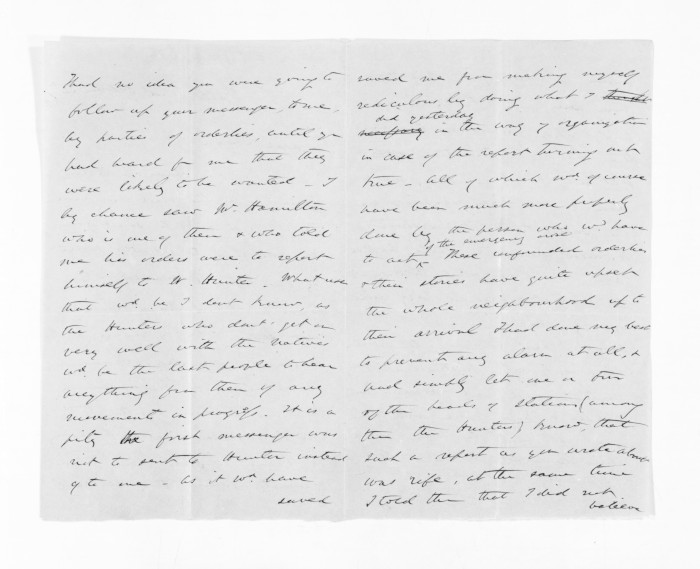 I had no idea you were going to
follow up your messenger, to me,
by parties of orderlies, until you
had heard fr me that they
were likely to be wanted – I
by chance saw Mr. Hamilton
who is one of them & who told
me his orders were to report
himself to W. Hunter. What use
that wd. be I don't know, as
the Hunters who don't get on
very well with the natives
wd be the last people to hear
anything from them of any
movement in progress. It is a
pity the first messenger was
not to sent to Hunter instead
of to me – as it wd. have
saved
saved me from making myself
ridiculous by doing what I
did yesterday
in the way of organization
in case of the report turning out
true – all of which wd. of course
have been much more properly
done by the person who wd. have
to act if the emergency arose. These confounded orderlies
& their stories have quite upset
the whole neighbourhood up to
their arrival I had done my best
to prevent any alarm at all, &
had simply let one or two
of the heads of stations (among
them the Hunters) know, that
such a report as you wrote about
was rife, at the same time
I told them that I did not
believe